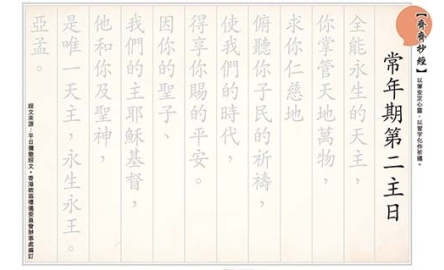 【齊齊抄經】
以筆安定心靈，以習字化作祈禱。
常年期第二主日
全能永生的天主，
你掌管天地萬物，
求你仁慈地
俯聽你子民的祈禱，
使我們的時代，
得享你賜的平安。
因你的聖子、
我們的主耶穌基督，
他和你及聖神，
是唯一天主，永生永王。
亞孟。
經文來源：平日彌撒經文，香港教區禮儀委員會辦事處編訂